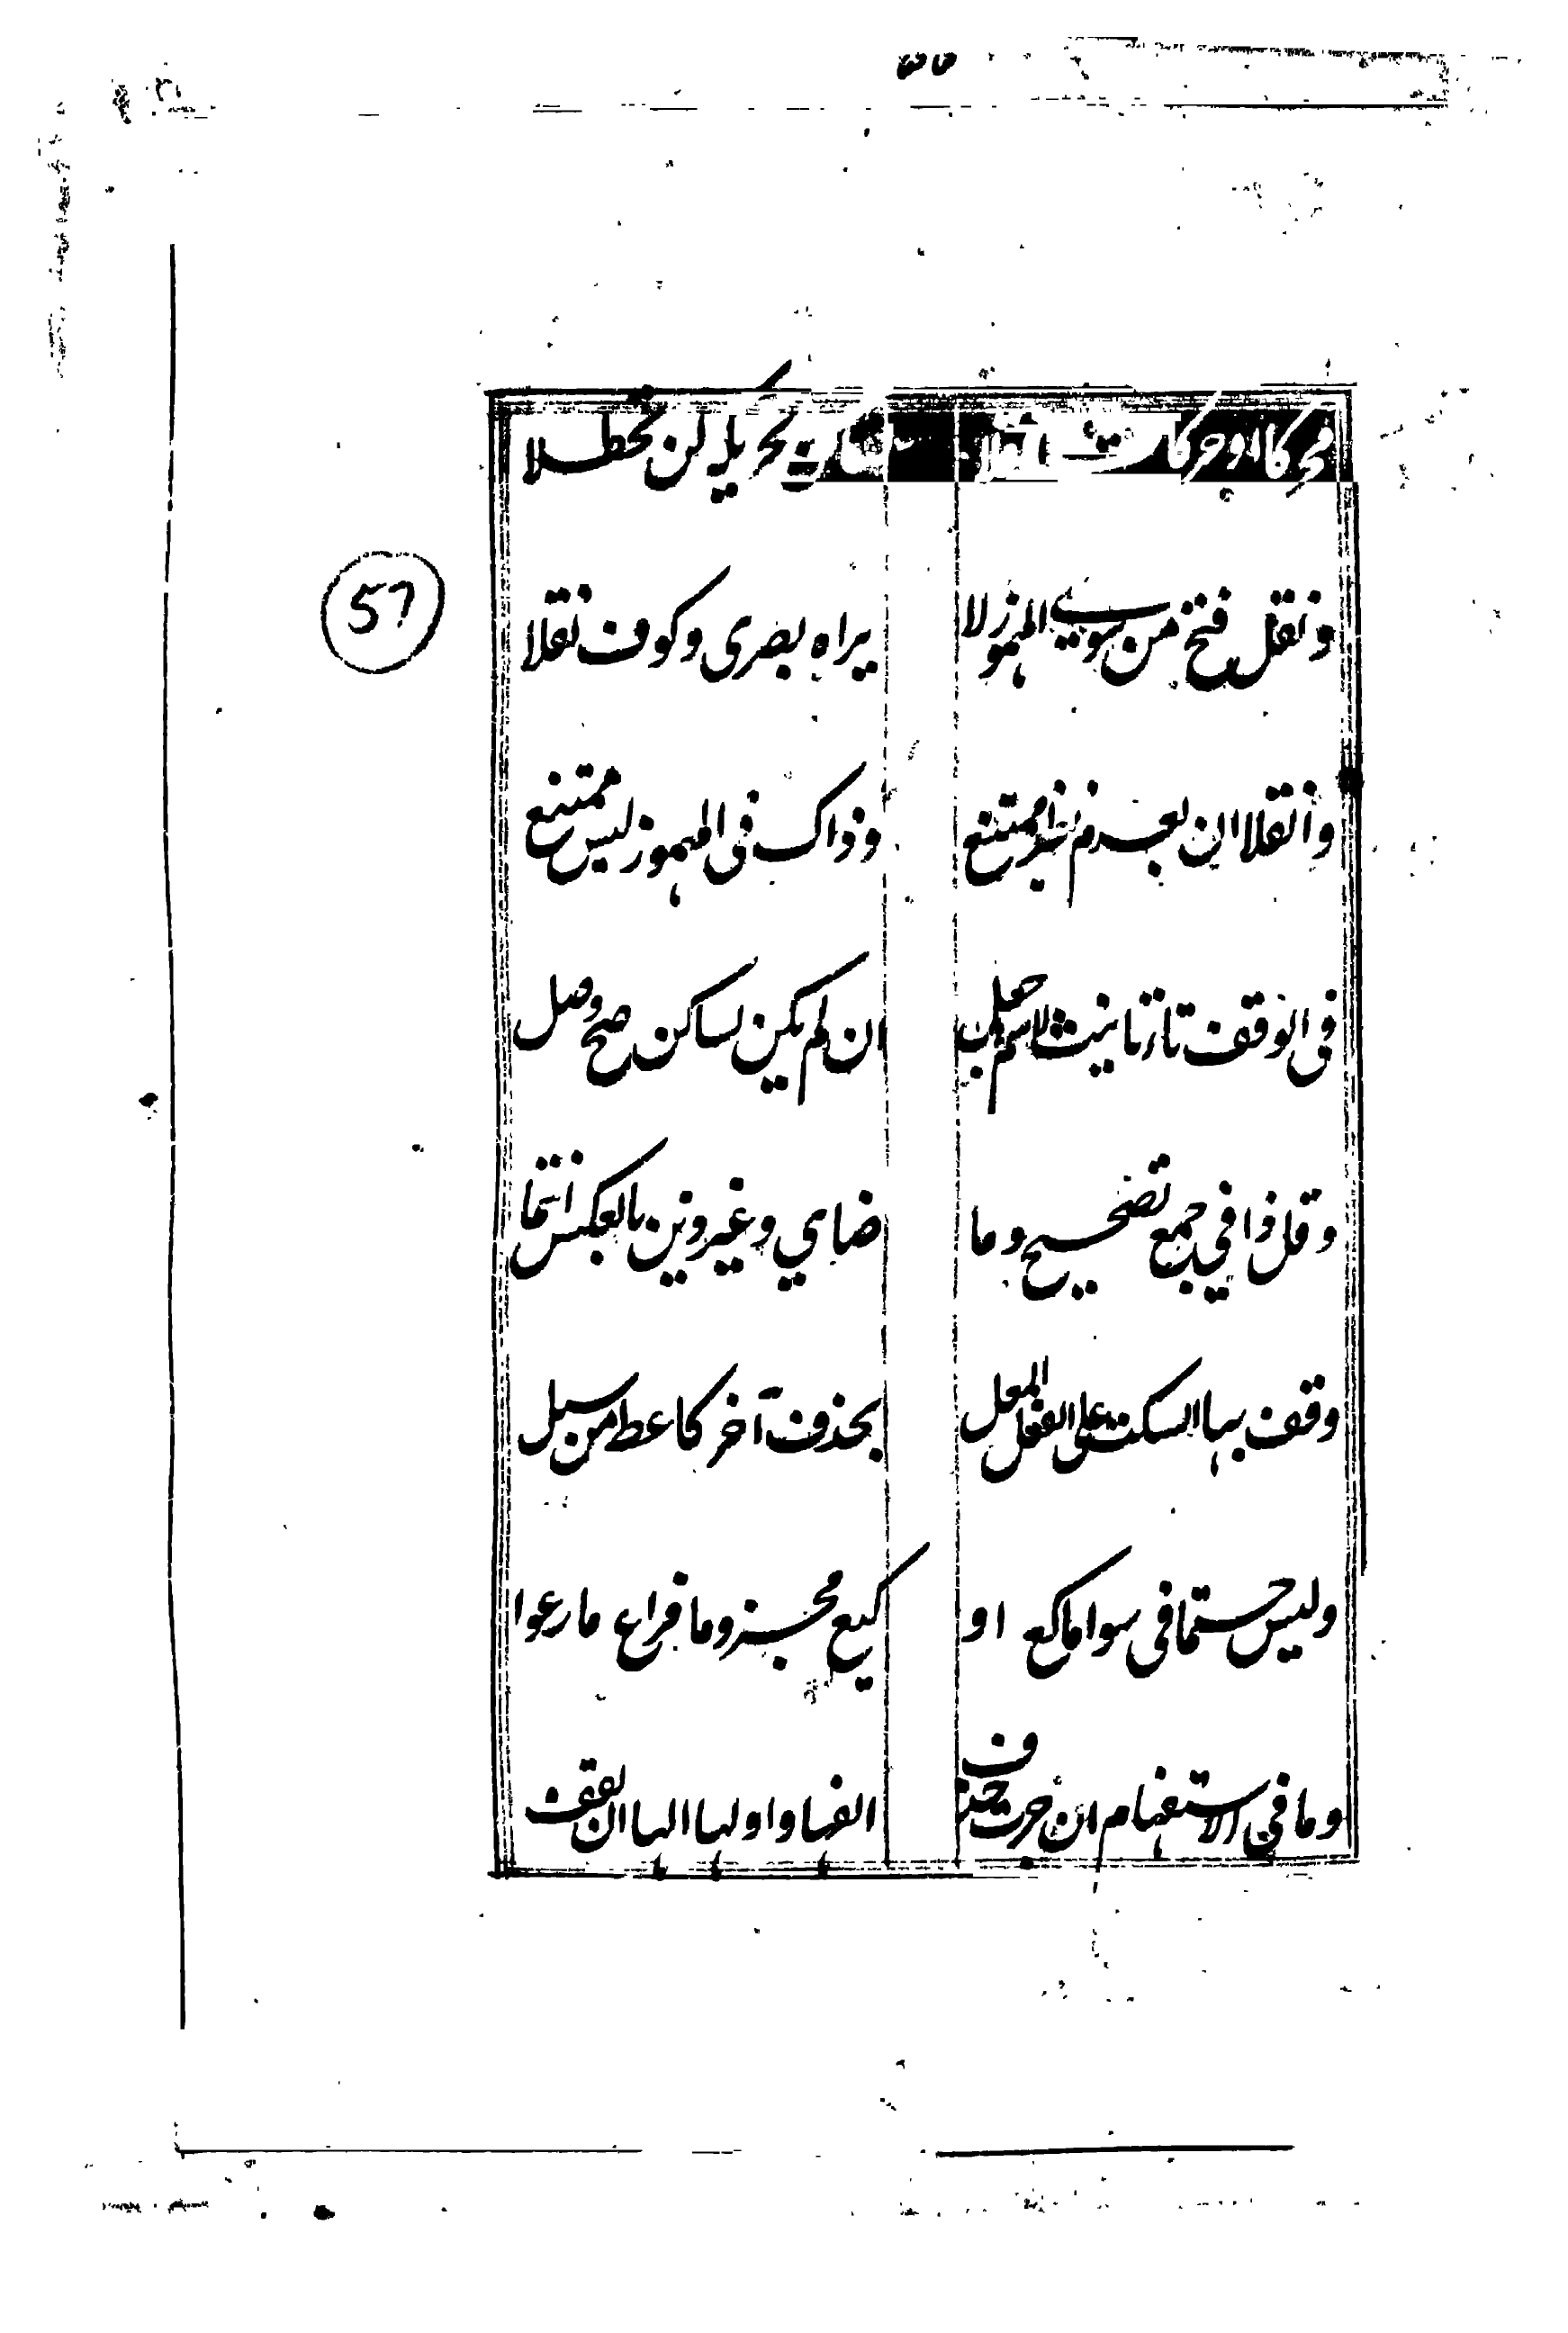 محركا وحركات انقلا لساكن تحريكه لن يحظلا
ونقل فتح من سوى المهموز لا يراه بصرى وكوف نقلا
والنقل ان يعدم نظير ممتنع وذاك فى المهموز ليس ممتنع
فى الوقف تا تانيث الاسم ها جعل ان لم يكن لساكن صح وصل
وقل ذا في جمع تصحيح وما ضاهي وغير ذين بالعكس انتما
وقف بها السكت على الفعل المعل بحذف آخر كاعط من سيل
وليس حتما فى سوا ما كع او كيع مجزوما فراع ما رعوا
وما في الاستفهام ان جرت حذف الفها واولها الها ان تقف
57